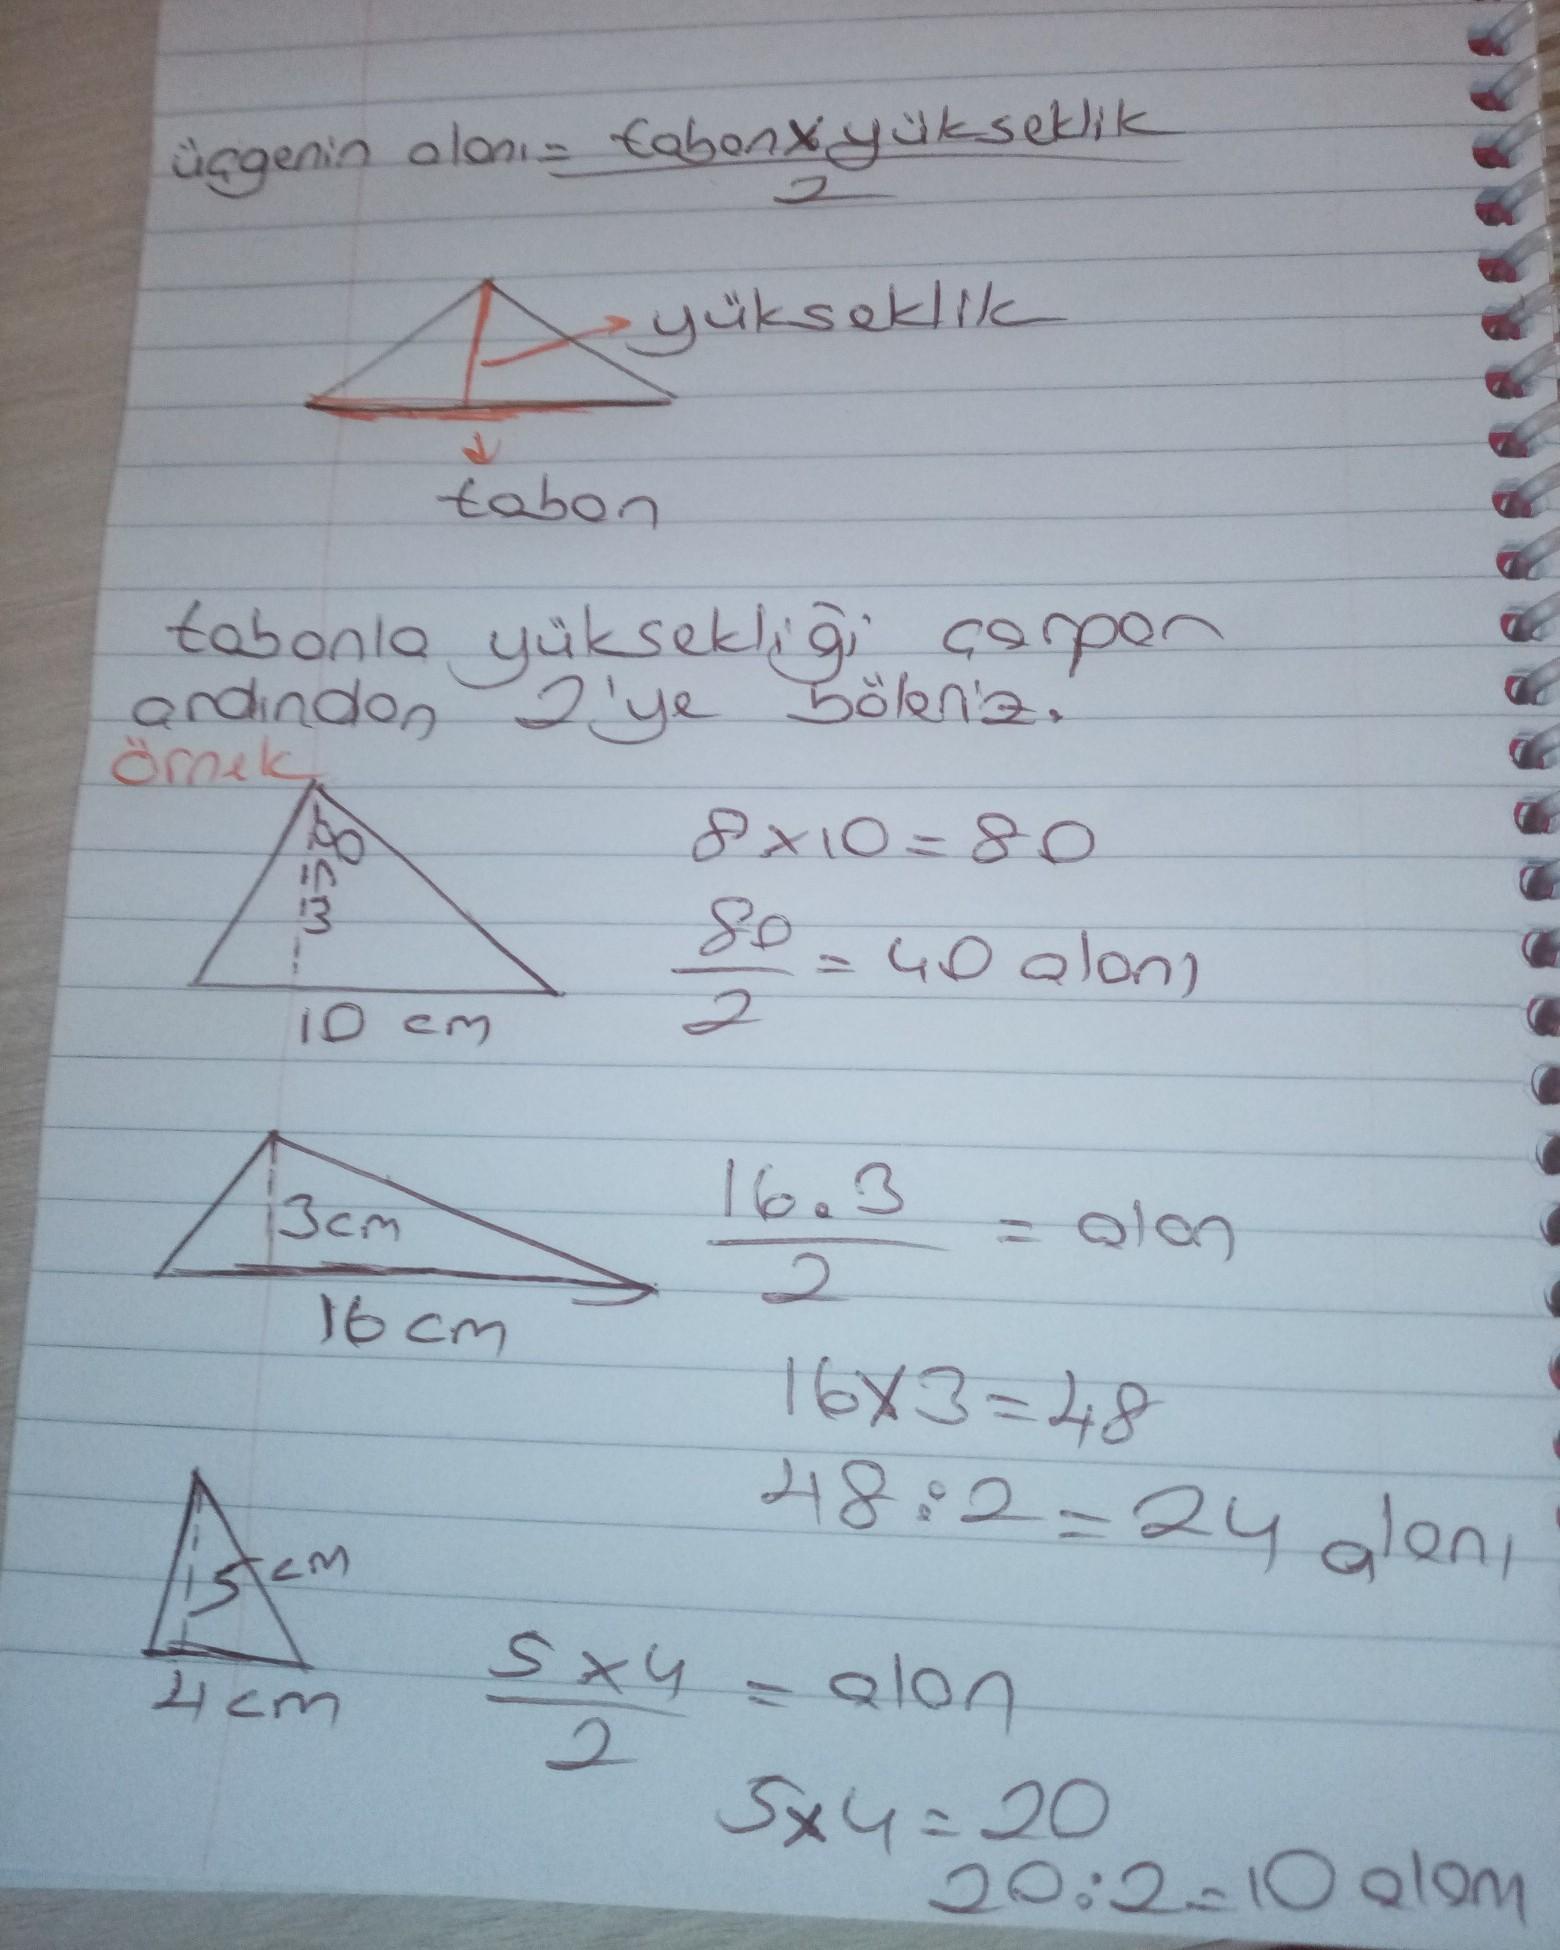 üçgenin alanı = taban x yükseklik
2
yükseklik
taban
tabanla yüksekliği çarpar
ardından 2'ye böleriz.
örnek
8 cm
10 cm
8 x 10 = 80
80
2
= 40 alanı
3 cm
16 cm
16 . 3
2
= alan
16 x 3 = 48
48 : 2 = 24 alanı
5 cm
4 cm
5 x 4
2
= alan
5 x 4 = 20
20 : 2 = 10 alanı